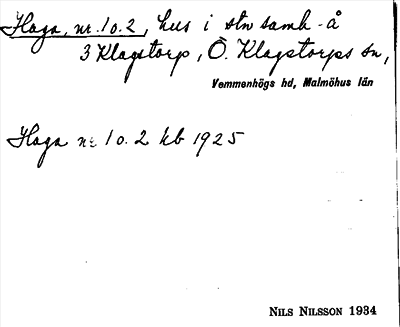 Haga, nr. 1 o. 2, hus i stn samh - å
3 Klagstorp, Ö. Klagstorps sn,
Vemmenhögs hd, Malmöhus län
Haga nr 1 o. 2 kb 1925
NILS NILSSON 1934